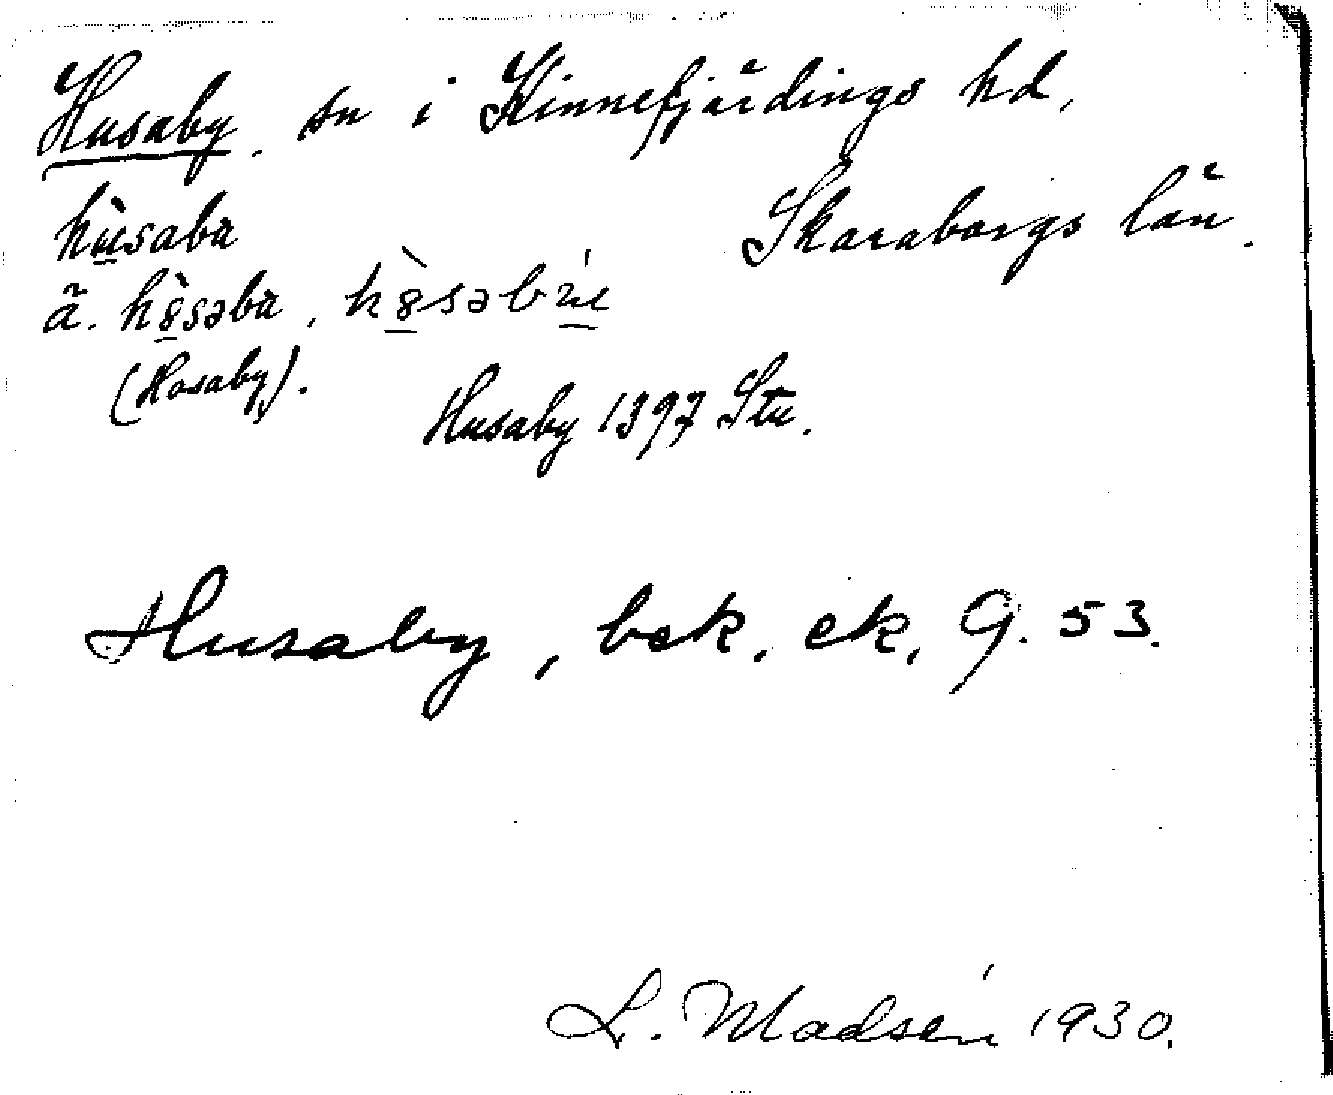 Husaby, sn i Kinnefjärdings hd,
hùsabù Skaraborgs län.
ä. hòsəbù, hòsəbú
(Hosaby).
Husaby 1397 Stu.
Husaby, bek. ek, G. 53.
L. Madsén 1930.